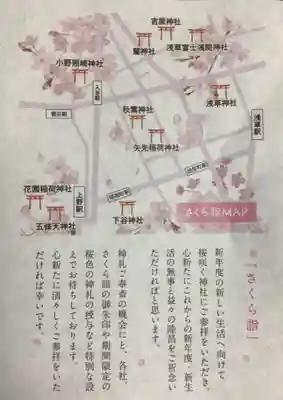 吉原神社
鷲神社
浅草富士浅間神社
小野照崎神社
入谷駅
秋葉神社
浅草神社
浅草駅
矢先稲荷神社
花園稲荷神社
上野駅
稲荷町駅
田原町駅
五條天神社
下谷神社
さくら詣MAP
「さくら詣」
新年度の新しい生活へ向けて
桜咲く神社にご参拝をいただき、
心新たにこれからの新年度・新生
活の無事と益々の隆昌をご祈念い
ただければと思います。
神札ご奉斎の機会にと、各社、
さくら詣の御朱印や期間限定の
桜色の神札の授与など特別な設
えでお待ちしております。
心新たに清々しくご参拝をいた
だければ幸いです。